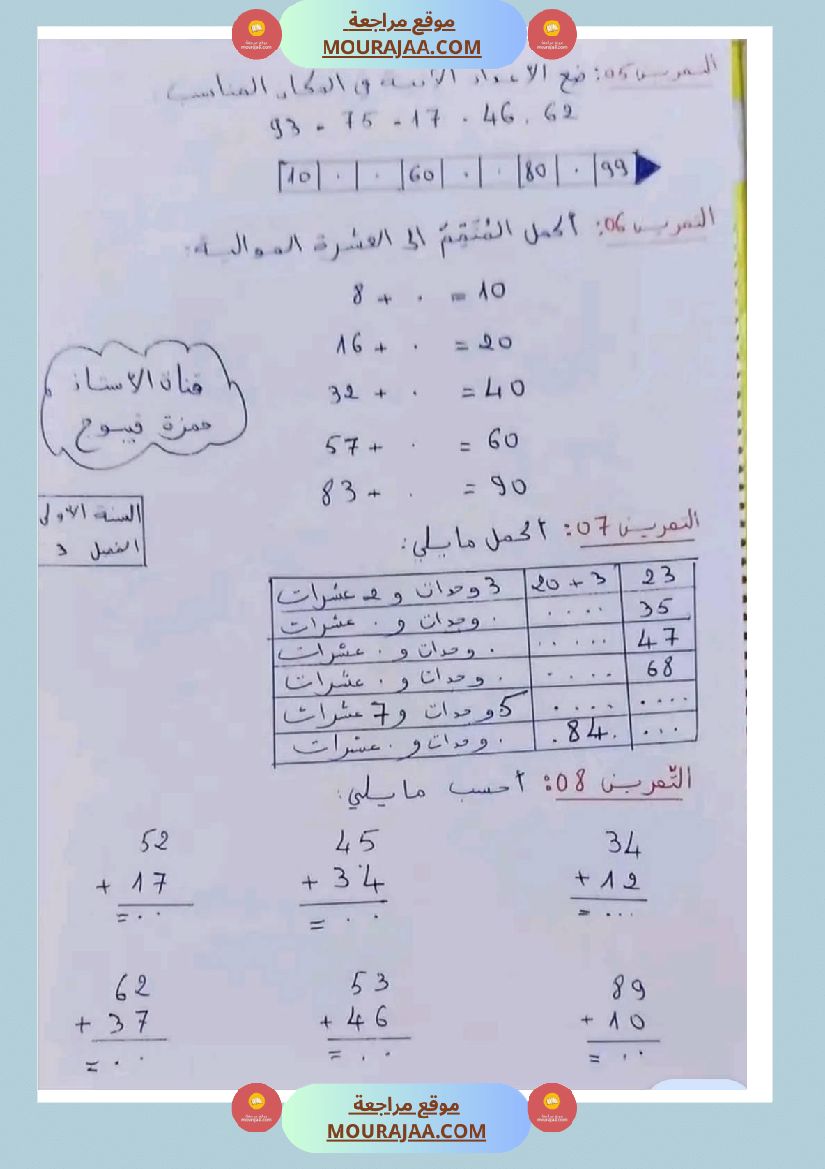 موقع مراجعة
MOURAJAA.COM
التمرين 05: ضع الاعداد الآتية في المكان المناسب
93 - 75 - 17 - 46 . 62
10 | . | . | 60 | . | . | 80 | . | 99
التمرين 06: أكمل المُتَمِّمْ الى العشرة الموالية:
8 + . = 10
16 + . = 20
32 + . = 40
57 + . = 60
83 + . = 90
قناة الأستاذ
حمزة فيوج
السنة الاولى
الفصل 3
التمرين 07: أكمل مايلي:
23 | 20 + 3 | 3 وحدات و 2 عشرات
35 | .... | . وحدات و . عشرات
47 | ..... | . وحدات و . عشرات
68 | .... | . وحدات و . عشرات
.... | .... | 5 وحدات و 7 عشرات
... | .84. | . وحدات و . عشرات
التّمرين 08: أحسب مايلي:
34 45 52
+ 12 + 34 + 17
= ... = .. = ..
89 53 62
+ 10 + 46 + 37
= .. = .. = ..
موقع مراجعة
MOURAJAA.COM